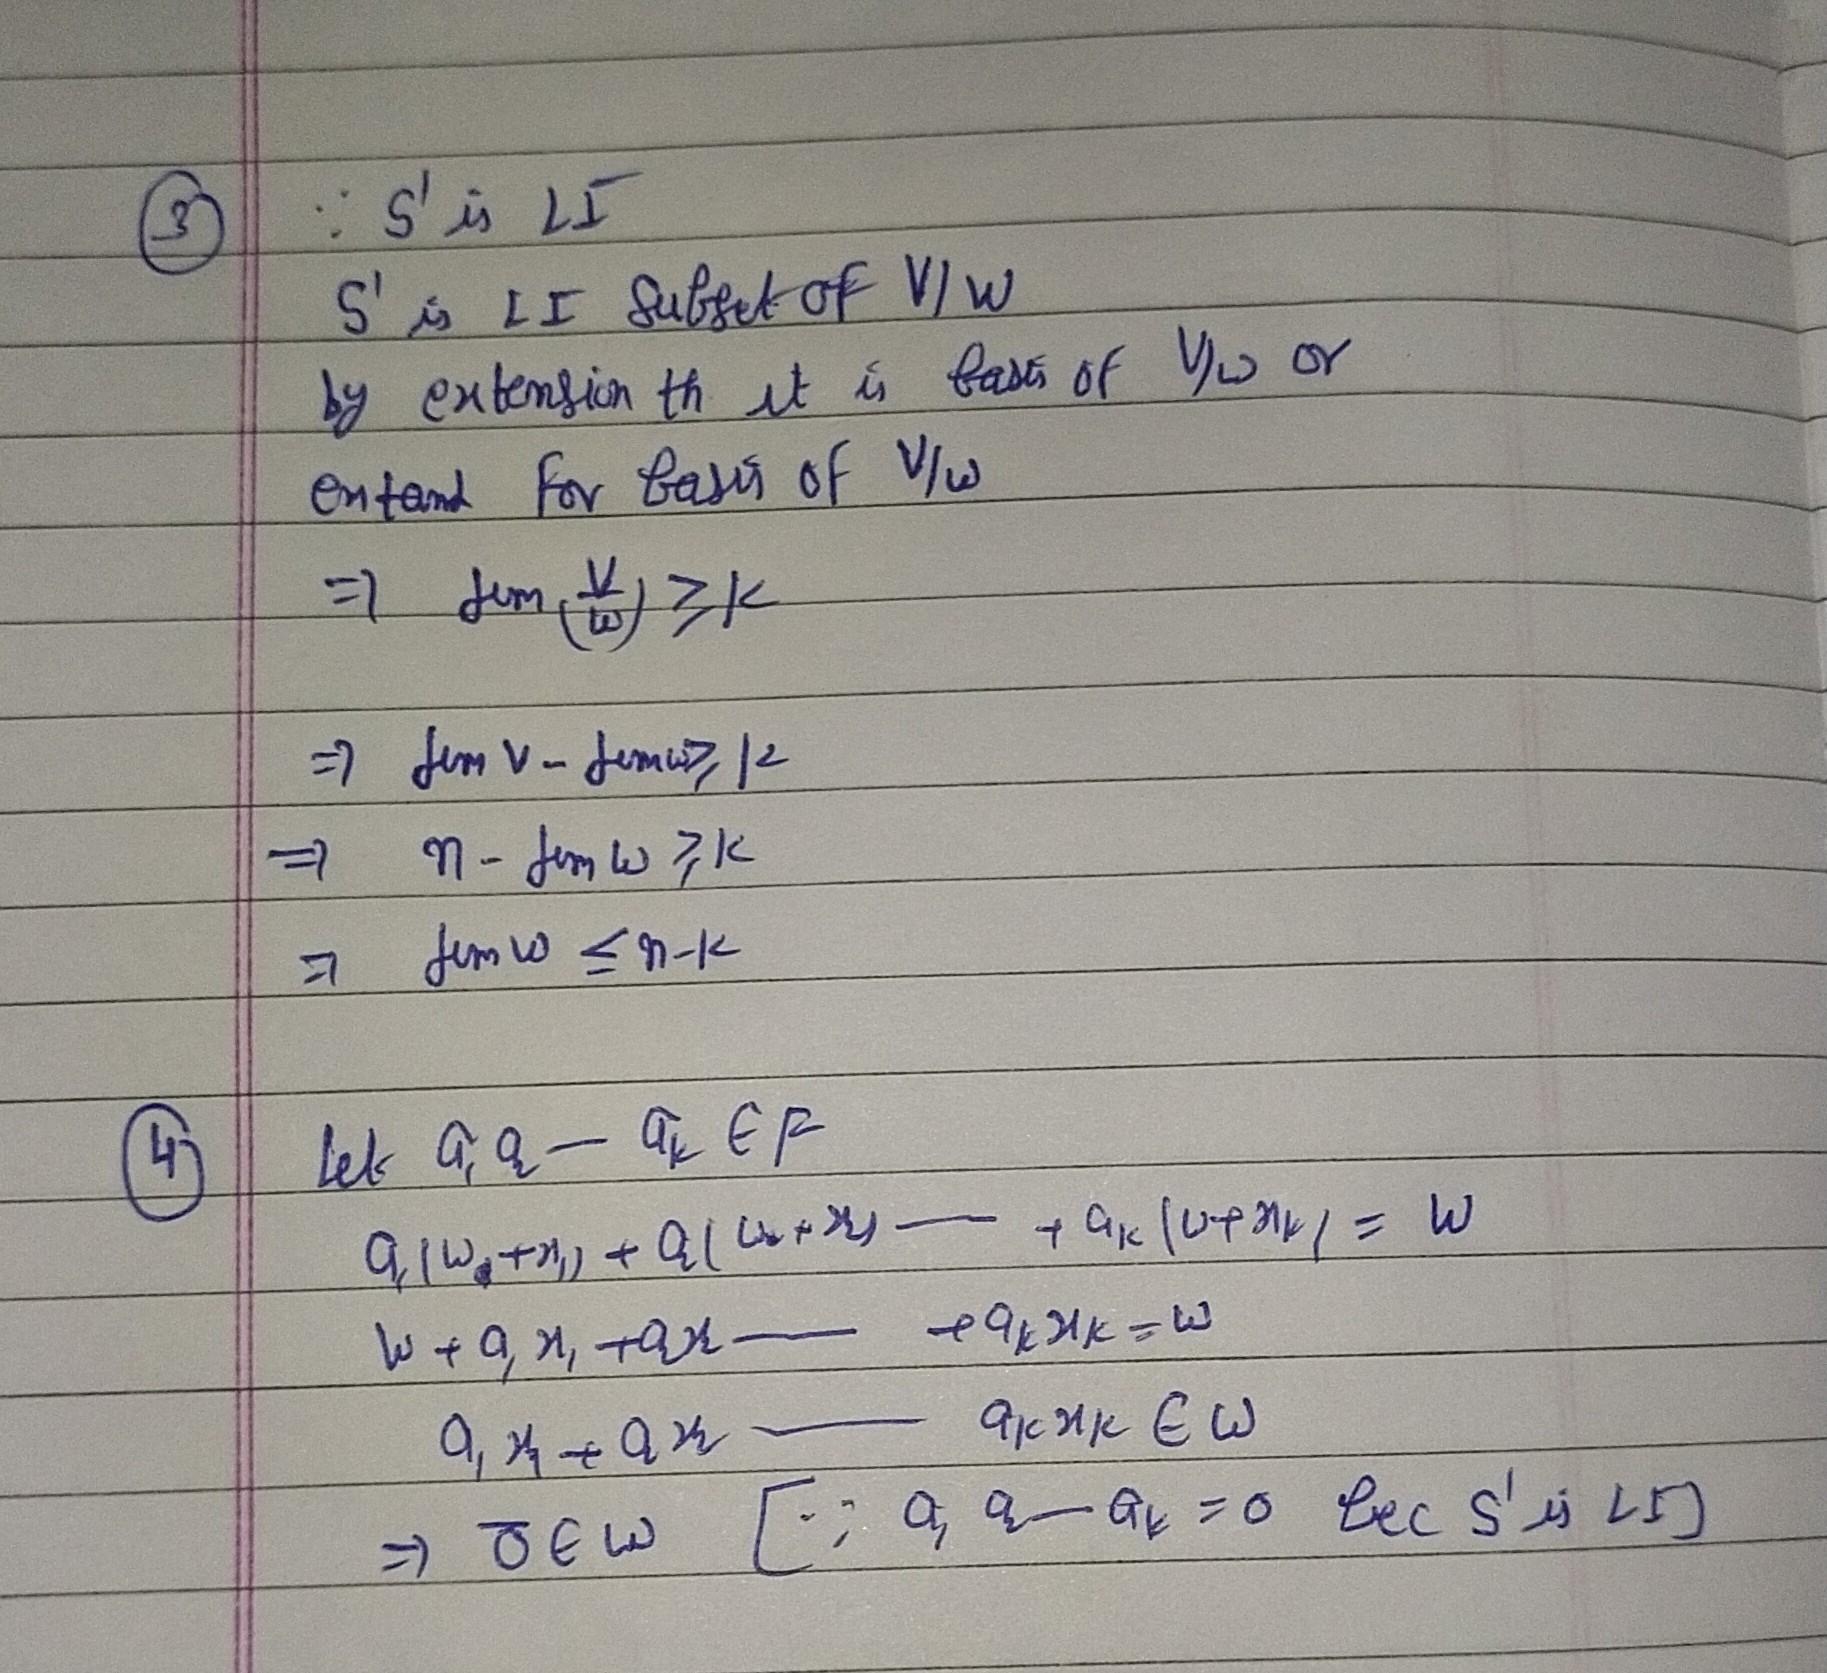 ③ ∵ S' is LI
S' is LI Subset of V/W
by extension th it is basis of V/W or
extand for basis of V/W
=> dim (V/W) ≥ k
=> dim V - dim W ≥ k
=> n - dim W ≥ k
=> dim W ≤ n-k
④ Let a₁ a₂ — aₖ ∈ F
a₁(W+x₁) + a₂(W+x₂) — + aₖ(W+xₖ) = W
W + a₁x₁ + a₂x₂ — + aₖxₖ = W
a₁x₁ + a₂x₂ — aₖxₖ ∈ W
=> 0̅ ∈ W [∵ a₁ a₂ — aₖ = 0 bec S' is LI]